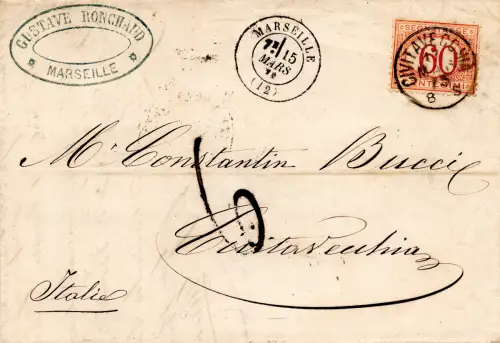 GUSTAVE RONCHAUD
MARSEILLE
MARSEILLE
15
MARS
(12)
SEGNATASSE
60
CIVITAVECCHIA
8
Mr. Constantin Bucci
6
Civitavecchia
Italie